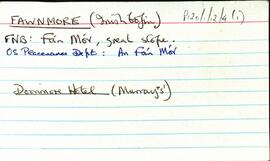 FAWNMORE (Inishbofin) P120/1/2/4(1)
FNB: Fán Mór, great slope.
OS Placenames Dept: An Fán Mór
Doonmore Hotel (Murray's)